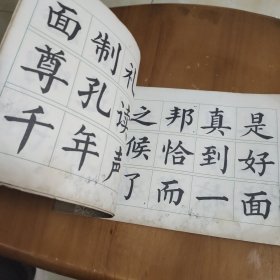 面制礼
尊孔读
千年声
之邦真是
候恰到好
了而一面